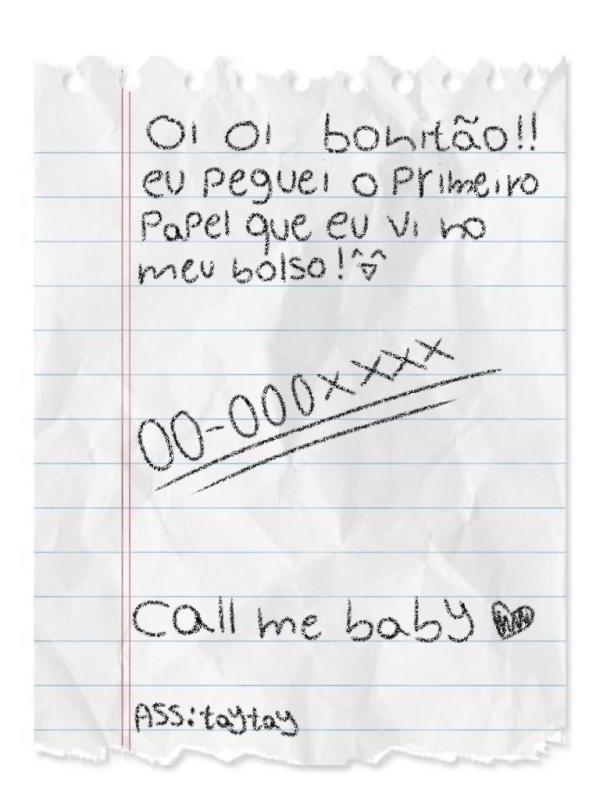 Oi Oi bonitão!!
eu peguei o Primeiro
Papel que eu vi no
meu bolso!
00-000xxxx
Call me baby
ASS:taytay